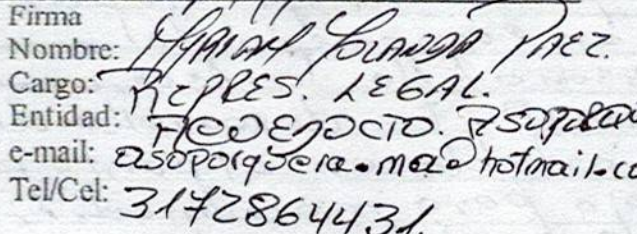 Firma
Nombre: Myriam Yolanda Paez.
Cargo: Repres. LEGAL.
Entidad:
e-mail: asoporquera.ma@hotmail.co
Tel/Cel: 3172864431.